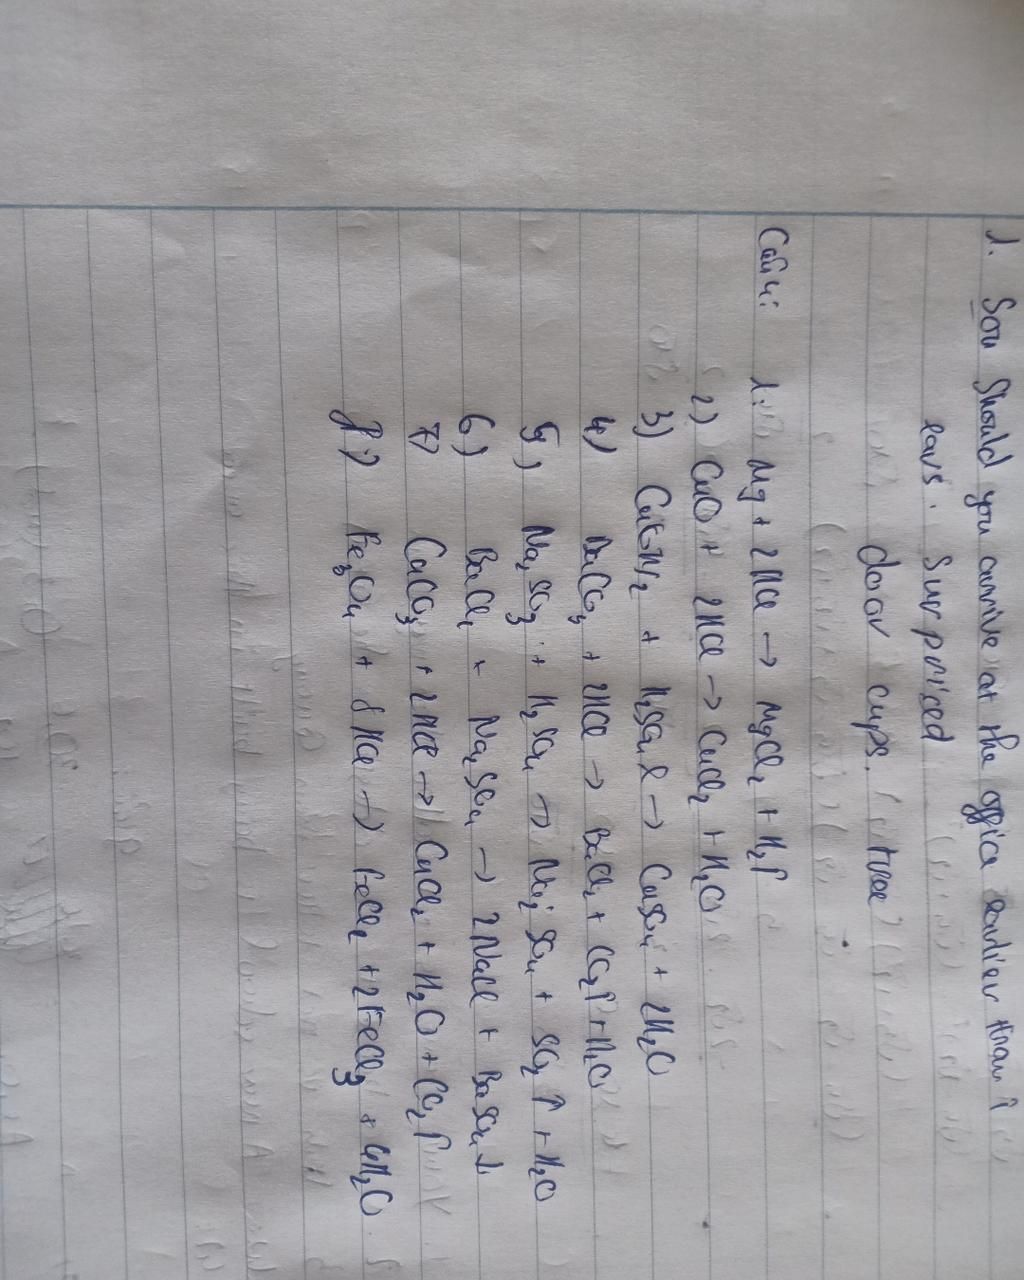 1. Sou Should you arrive at the office earlier than i
ears. Surpriced
door cups. true
Câu 4: 1. Mg + 2HCl → MgCl₂ + H₂↑
2) CuO + 2HCl → CuCl₂ + H₂O
3) + H₂SO₄ l → CuSO₄ + 2H₂O
4) BaCO₃ + 2HCl → BaCl₂ + CO₂↑ + H₂O
5) Na₂SO₃ + H₂SO₄ → Na₂SO₄ + SO₂↑ + H₂O
6) BaCl₂ + Na₂SO₄ → 2NaCl + BaSO₄↓
7) CaCO₃ + 2HCl → CaCl₂ + H₂O + CO₂↑
8) Fe₃O₄ + 8HCl → FeCl₂ + 2FeCl₃ + 4H₂O